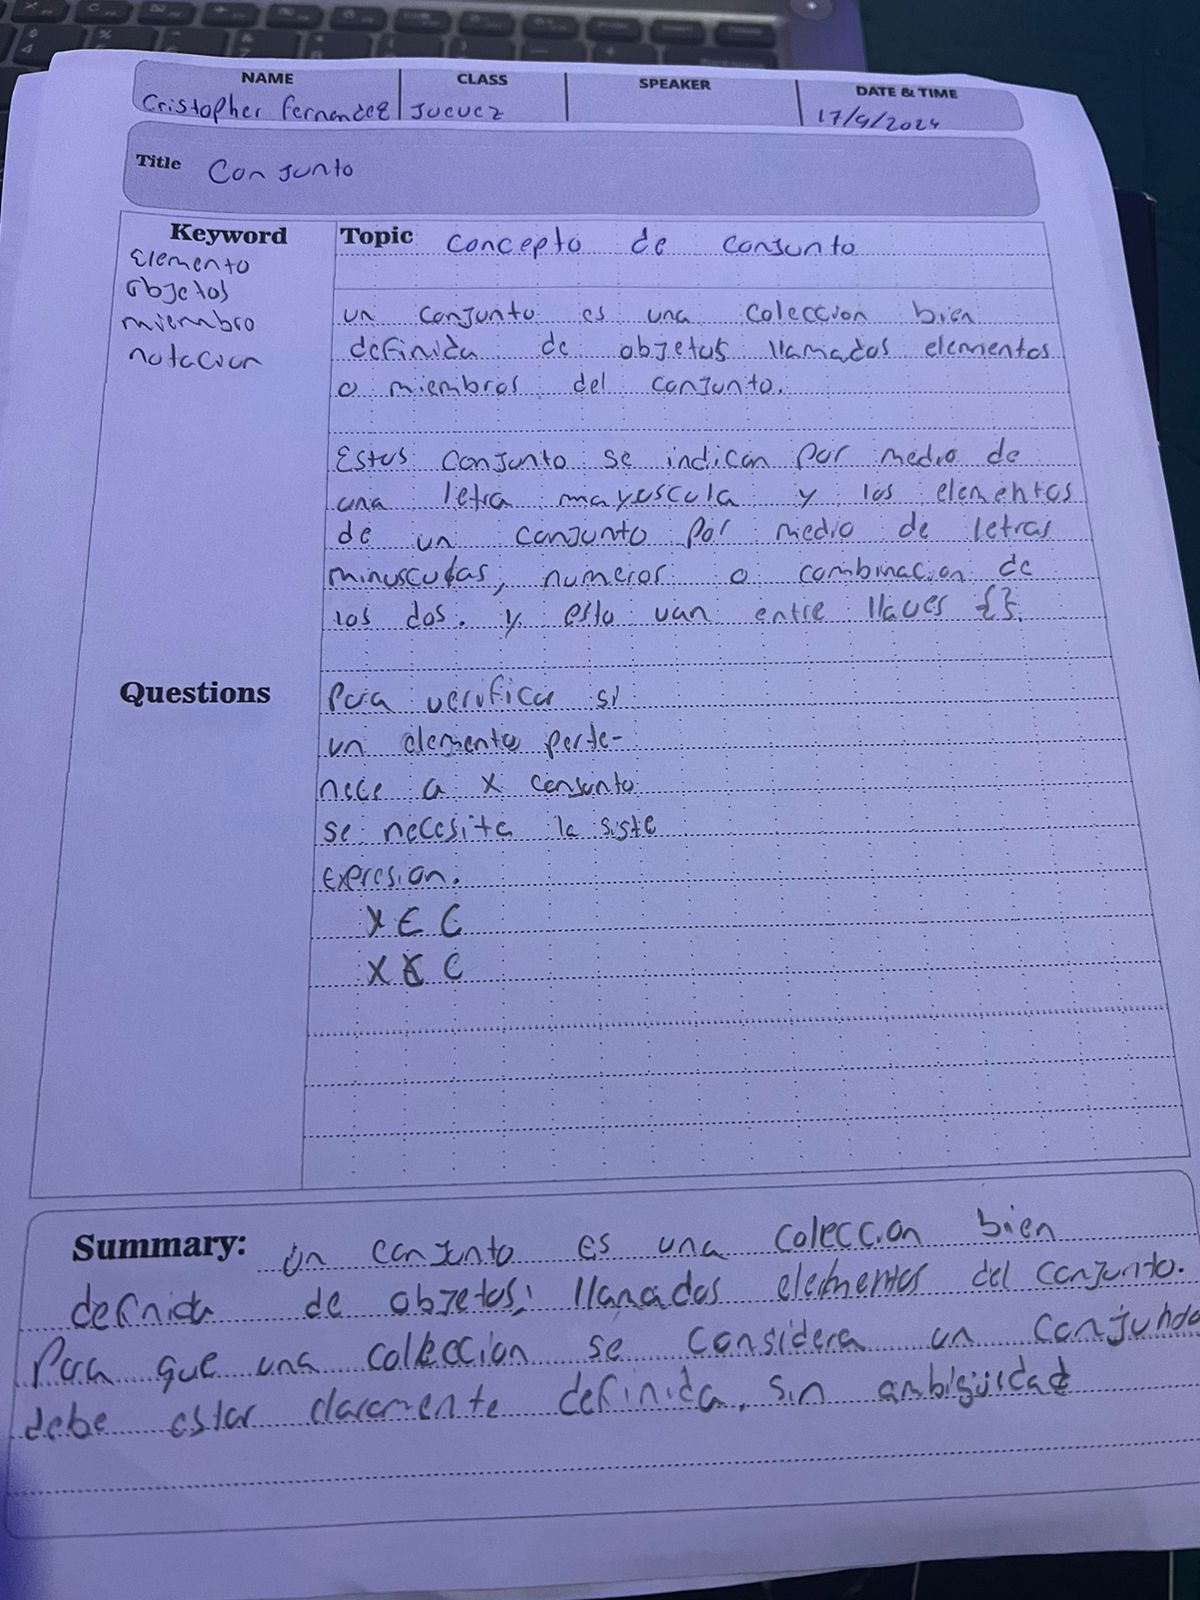 NAME CLASS SPEAKER DATE & TIME
Cristopher Fernandez Juevez 17/9/2024
Title Conjunto
Keyword
Elemento
objetos
miembro
notacion
Topic Concepto de conjunto
un conjunto es una coleccion bien
definida de objetos llamados elementos
o miembros del conjunto.
Estos conjunto se indican por medio de
una letra mayuscula y los elementos
de un conjunto por medio de letras
minusculas, numeros o combinacion de
los dos. y esto van entre llaves {}.
Questions
Para verificar si
un elemento perte-
nece a x conjunto
se necesita la siste
expresion.
x ∈ C
x ∉ C
Summary: Un conjunto es una coleccion bien
definida de objetos, llamados elementos del conjunto.
Para que una coleccion se considera un conjundo
debe estar claramente definida, sin ambigüidad